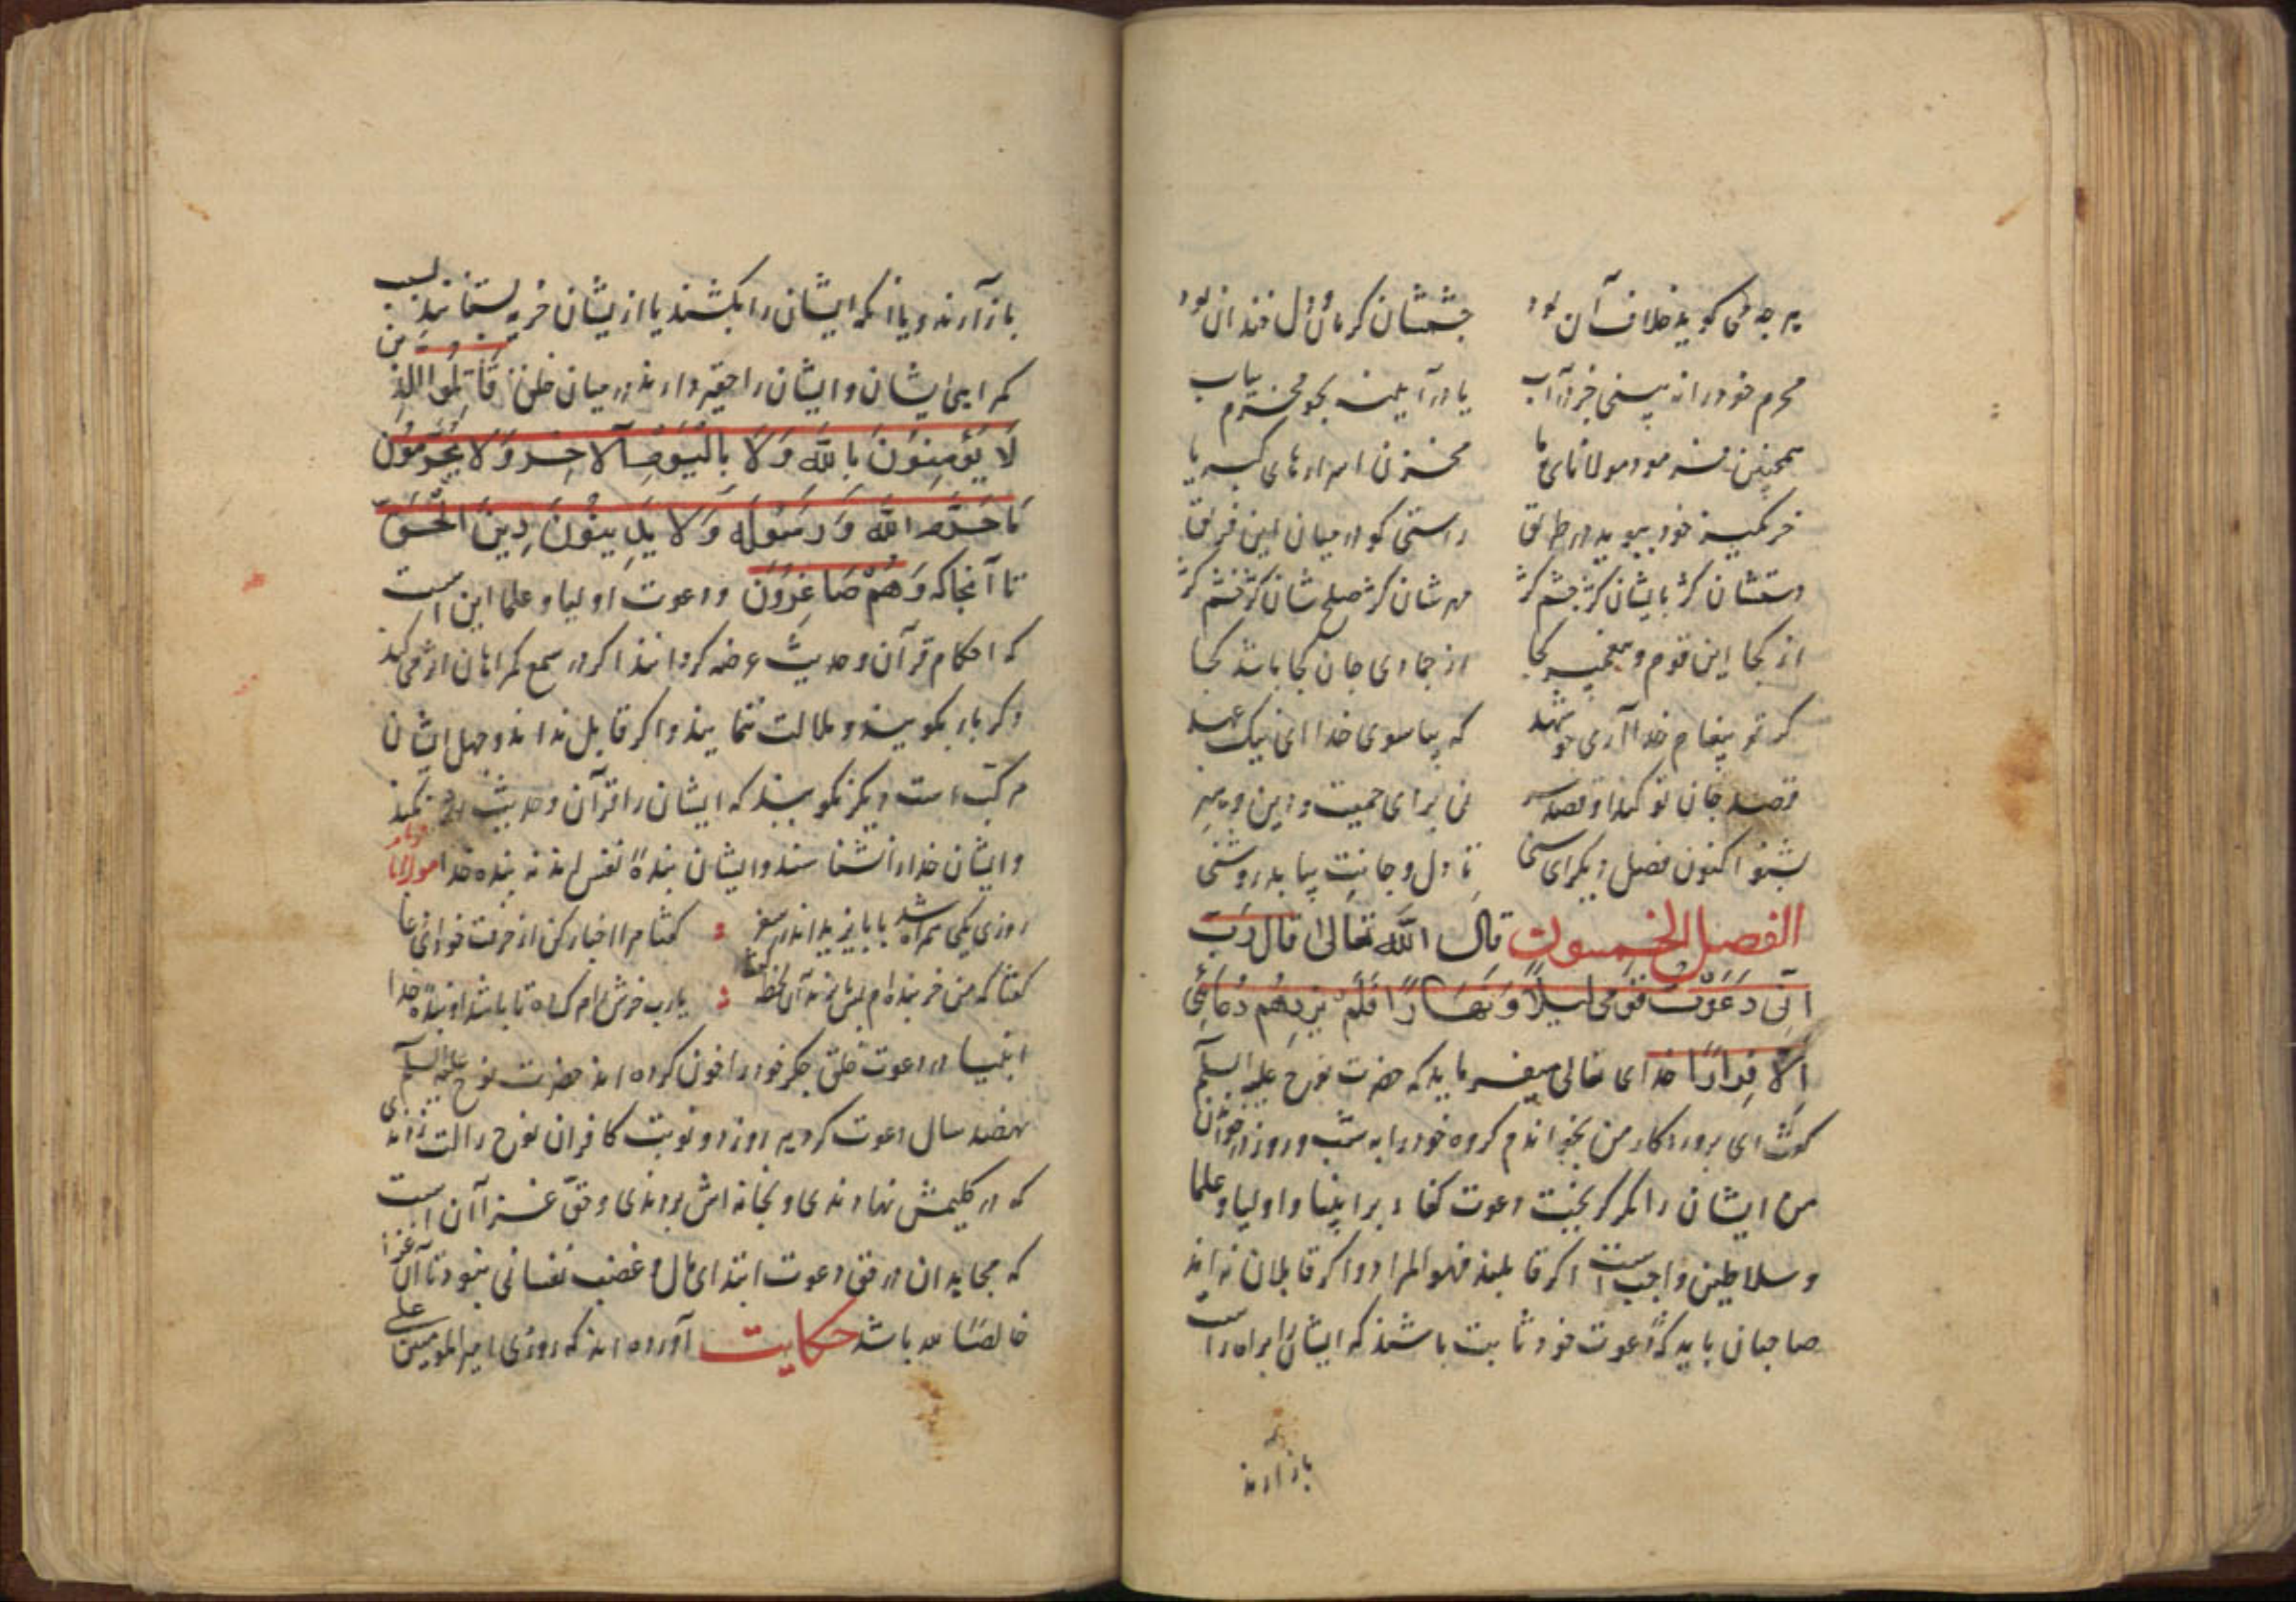 هر چه می گوید خلاف آن بود چشمشان گریان و دل خندان بود
محرم خود را نه بینی جز در آب یا در آ بجو محرم بیاب
همچنین فرمود مولانای ما مخزن اسرارهای کبریا
خر نمیه خود بپوید در طریق راستی کو در میان این فریق
دستشان کژ پایشان کژ چشم کژ مهرشان کژ صلحشان کژ خشم کژ
از کجا این قوم و پیغمبر کجا از جمادی جان کجا باشد کجا
گر تو پیغام خدا آری چو شهد که بیا سوی خدا ای نیک عهد
قصد جان تو کنند و قصد سر نی برای حمیت و دین و
بشنو اکنون فصل دیگر ای سخی تا دل و جانت بیابد روشنی
الفصل الخمسون قال الله تعالی قال رب
انی دعوت قومی لیلا و نهارا فلم یزدهم دعائی
الا فرارا خدای تعالی میفرماید که حضرت نوح علیه السلام
گفت ای پروردگار من بخواندم گروه خود را به شب و روز از خواندن
من ایشان را مگر گریختن دعوت کفار بر انبیا و اولیا و علما
و سلاطین واجب است اگر قابلند فهو المراد و اگر قابلان نه اند
صاحبان باید که دعوت خود ثابت باشند که ایشان را براه راست
باز آرند
باز آرند و یا آنکه ایشان را بکشند یا ازیشان خزیه بستانند بسبب
کمراهی ایشان و ایشان را حقیر دارند در میان خلق قاتلوا الذین
لا یؤمنون بالله و لا بالیوم الآخر و لا یحرمون
ما حرم الله و رسوله و لا یدینون دین الحق
تا آنجا که و هم صاغرون و دعوت اولیا و علما این است
که احکام قرآن و حدیث عرضه کردانند اگر در سمع کمراهان اثر می کند
دگر بار بگویند و ملالت ننمایند و اگر قابل نه اند و جهل ایشان
مرکب است دیگر نگویند که ایشان را قرآن و حدیث نکند
و ایشان خدا را نشناسند و ایشان بنده نفس اند نه بنده خدا مولانا فرماید
روزی یکی همراه شد با بایزید اندر سفر گفتا مرا اخبار کن از حرفت خود ای عا
گفتا که من خربنده ام پس بایزید آن لحظه گفت یا رب خرش را مرگ ده تا باشد او بنده خدا
انبیا در دعوت خلق جگر خود را خون کرده اند حضرت نوح علیه السلم
نهصد سال دعوت کرد هر روز دو نوبت کافران نوح را لت زدندی
که در گلیمش نهادندی و بخانه اش بردندی و حق غزا آن است
که مجاهدان در حق دعوت ابتدای مال و غضب نفسانی نبود تا آن غزا
خالصا لله باشد حکایت آورده اند که روزی امیر المومنین علی